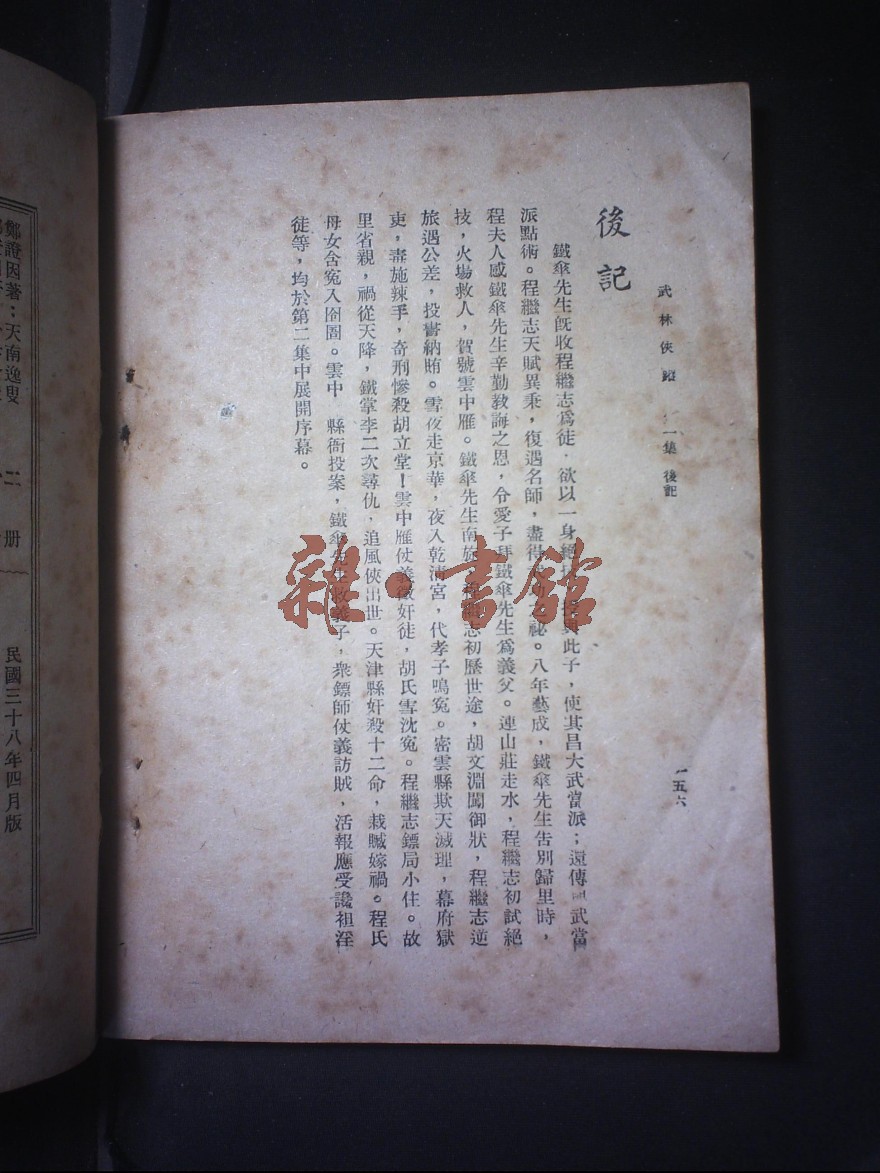 武林俠蹤 一集 後記
一五六
後記
鐵傘先生既收程繼志爲徒，欲以一身絕 此子，使其昌大武當派；還傳 武當
派點術。程繼志天賦異秉，復遇名師，盡得 祕。八年藝成，鐵傘先生告別歸里時，
程夫人感鐵傘先生辛勤教誨之恩，令愛子拜鐵傘先生爲義父。連山莊走水，程繼志初試絕
技，火場救人，賀號雲中雁。鐵傘先生南旋，程繼志初歷世途，胡文淵闖御狀，程繼志逆
旅遇公差，投書納賄。雪夜走京華，夜入乾清宮，代孝子鳴冤。密雲縣欺天滅理，幕府獄
吏，毒施辣手，奇刑慘殺胡立堂！雲中雁仗義徵奸徒，胡氏雪沈冤。程繼志鏢局小住。故
里省親，禍從天降，鐵掌李二次尋仇，追風俠出世。天津縣奸殺十二命，栽贓嫁禍。程氏
母女含冤入囹圄。雲中 縣衙投案，鐵傘先生收義子，衆鏢師仗義訪賊，活報應受讒祖淫
徒等，均於第二集中展開序幕。
雜·書館
鄭證因著：天南逸叟
二 册
民國三十八年四月版